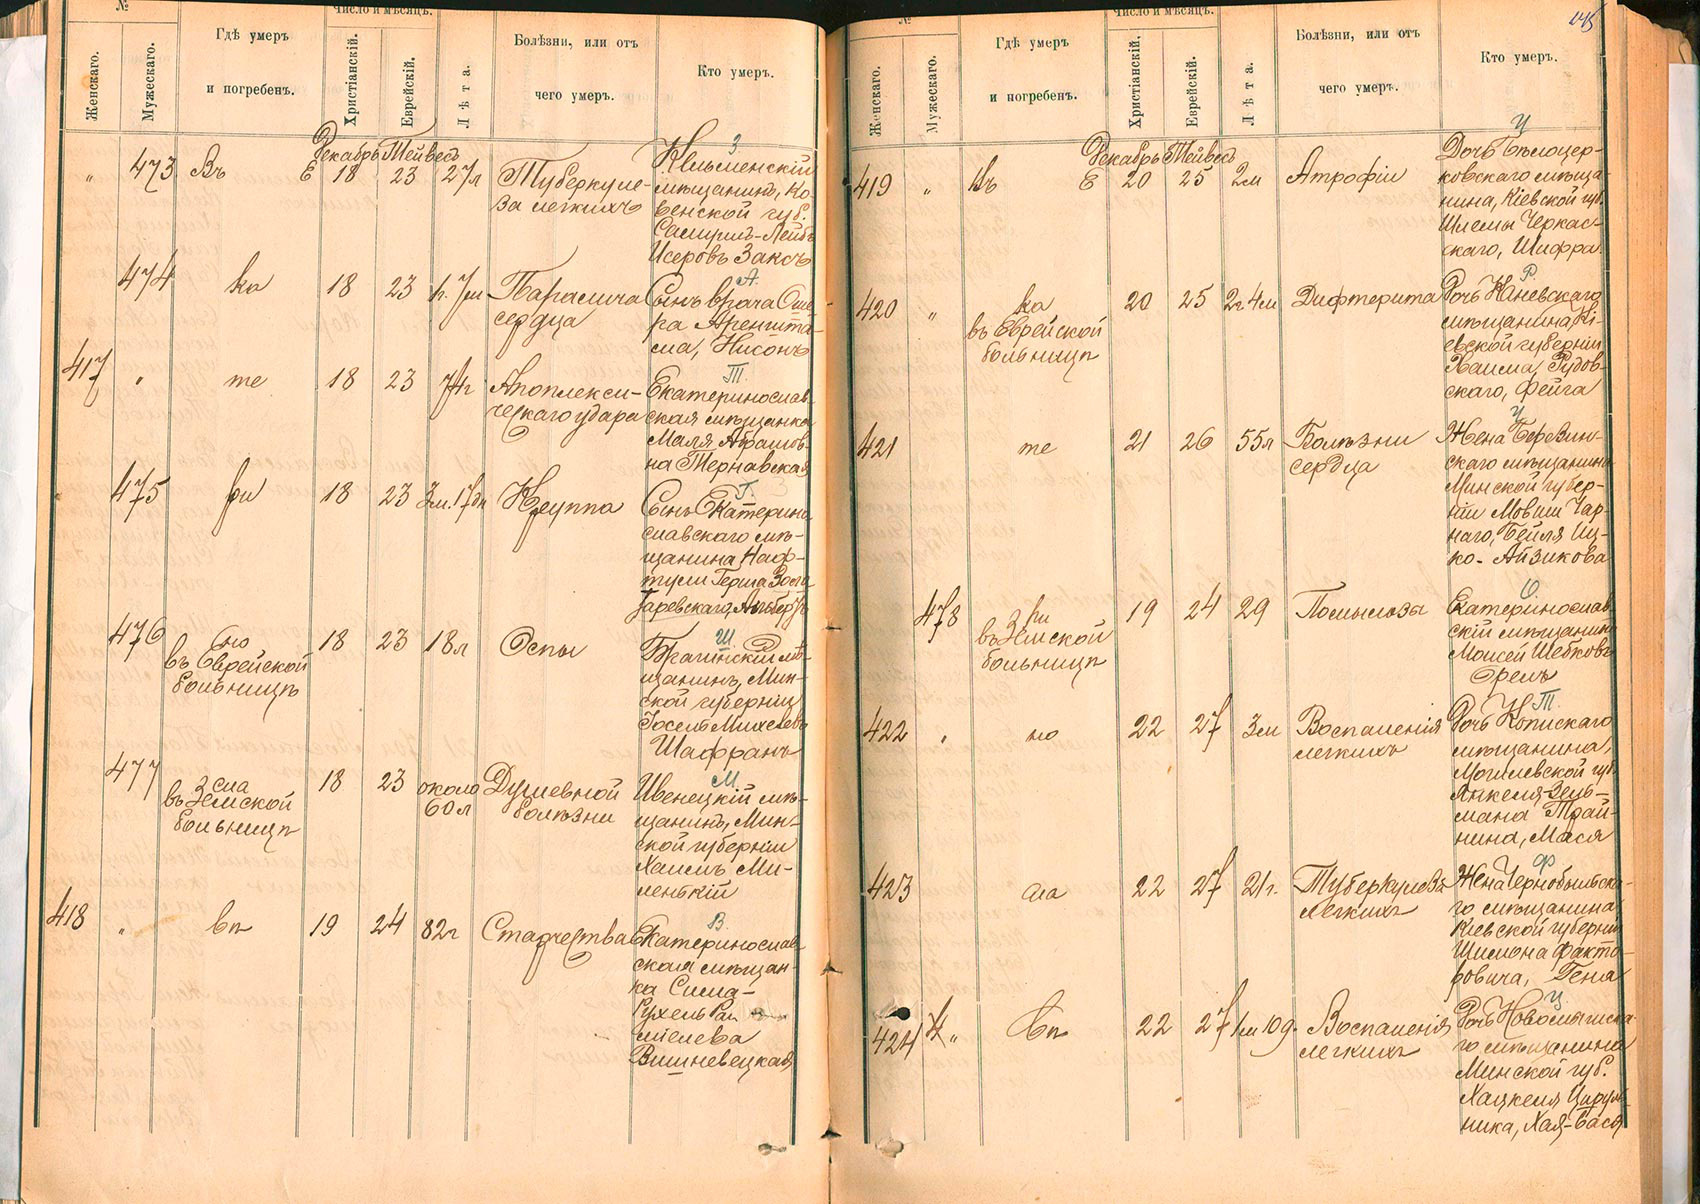 №
Число и мѣсяцъ.
Женскаго.
Мужескаго.
Гдѣ умеръ
и погребенъ.
Христіанскій.
Еврейскій.
Лѣта.
Болѣзни, или отъ
чего умеръ.
Кто умеръ.
Декабрь Тейвесъ
З
" 473 Въ Е 18 23 27л Туберкуле-
за легкихъ
Кельменскій
мѣщанинъ, Ко-
венской губ.
Самуилъ-Лейбъ
Исеровъ Заксъ
А.
474 ка 18 23 1г. 7м Паралича
сердца
Сынъ врача Оше-
ра Ареншта-
ма, Нисонъ
Т.
417 " те 18 23 74г Апоплекси-
ческаго удара
Екатеринослав-
ская мѣщанка
Маля Абрамов-
на Тернавская
Г. З
475 ри 18 23 3м. 17дн Круппа
Сынъ Екатерино
славскаго мѣ-
щанина Наф-
тули Герша
476 но
въ Еврейской
больницѣ
18 23 18л Оспы
Ш.
Брагинскій мѣ-
щанинъ, Мин-
ской губерніи
Іосель Михелевъ
Шафранъ
477 сла
въ Земской
больницѣ
18 23 около
60л
Душевной
болѣзни
М.
Ивенецкій мѣ-
щанинъ, Мин-
ской губерніи
Хаимъ Ми-
ленькій
418 " вѣ 19 24 82г Старчества
В.
Екатеринослав
ская мѣщан-
ка Сима-
Рухель
міелева
Вишневецкая
145
№
Число и мѣсяцъ.
Женскаго.
Мужескаго.
Гдѣ умеръ
и погребенъ.
Христіанскій.
Еврейскій.
Лѣта.
Болѣзни, или отъ
чего умеръ.
Кто умеръ.
Декабрь Тейвесъ
Ч
419 " Въ Е 20 25 2м Атрофіи
Дочь Бѣлоцер-
ковскаго мѣща-
нина, Кіевской губ.
Шлемы Черкас-
скаго, Шифра
Р.
420 " ка
въ Еврейской
больницѣ
20 25 2г 4м Дифтерита
Дочь Каневскаго
мѣщанина Кі-
евской губерніи
Хаима Рудов-
скаго, Фейга
Ч
421 те 21 26 55л Болѣзни
сердца
Жена Березин-
скаго мѣщанина
Минской губер-
ніи Мовши Чар-
наго, Бейля Иц-
ко-Айзикова
О.
478 ри
въ Земской
больницѣ
19 24 29
Екатеринослав-
скій мѣщанинъ
Моисей Шебковъ
Орелъ
Т.
422 " но 22 27 3м Воспаленія
легкихъ
Дочь Копискаго
мѣщанина,
Могилевской губ.
Янкеля-Зель-
мана Трай-
нина, Мася
Ф
423 сла 22 27 21г. Туберкулоза
легкихъ
Жена Чернобыльска-
го мѣщанина
Кіевской губерніи
Шимона Факто-
ровича, Геня
Ц.
424 " вѣ 22 27 1м 10д. Воспаленія
легкихъ
Дочь Новомышска-
го мѣщанина
Минской губ.
Хацкеля Цируль-
ника, Хая-Бася